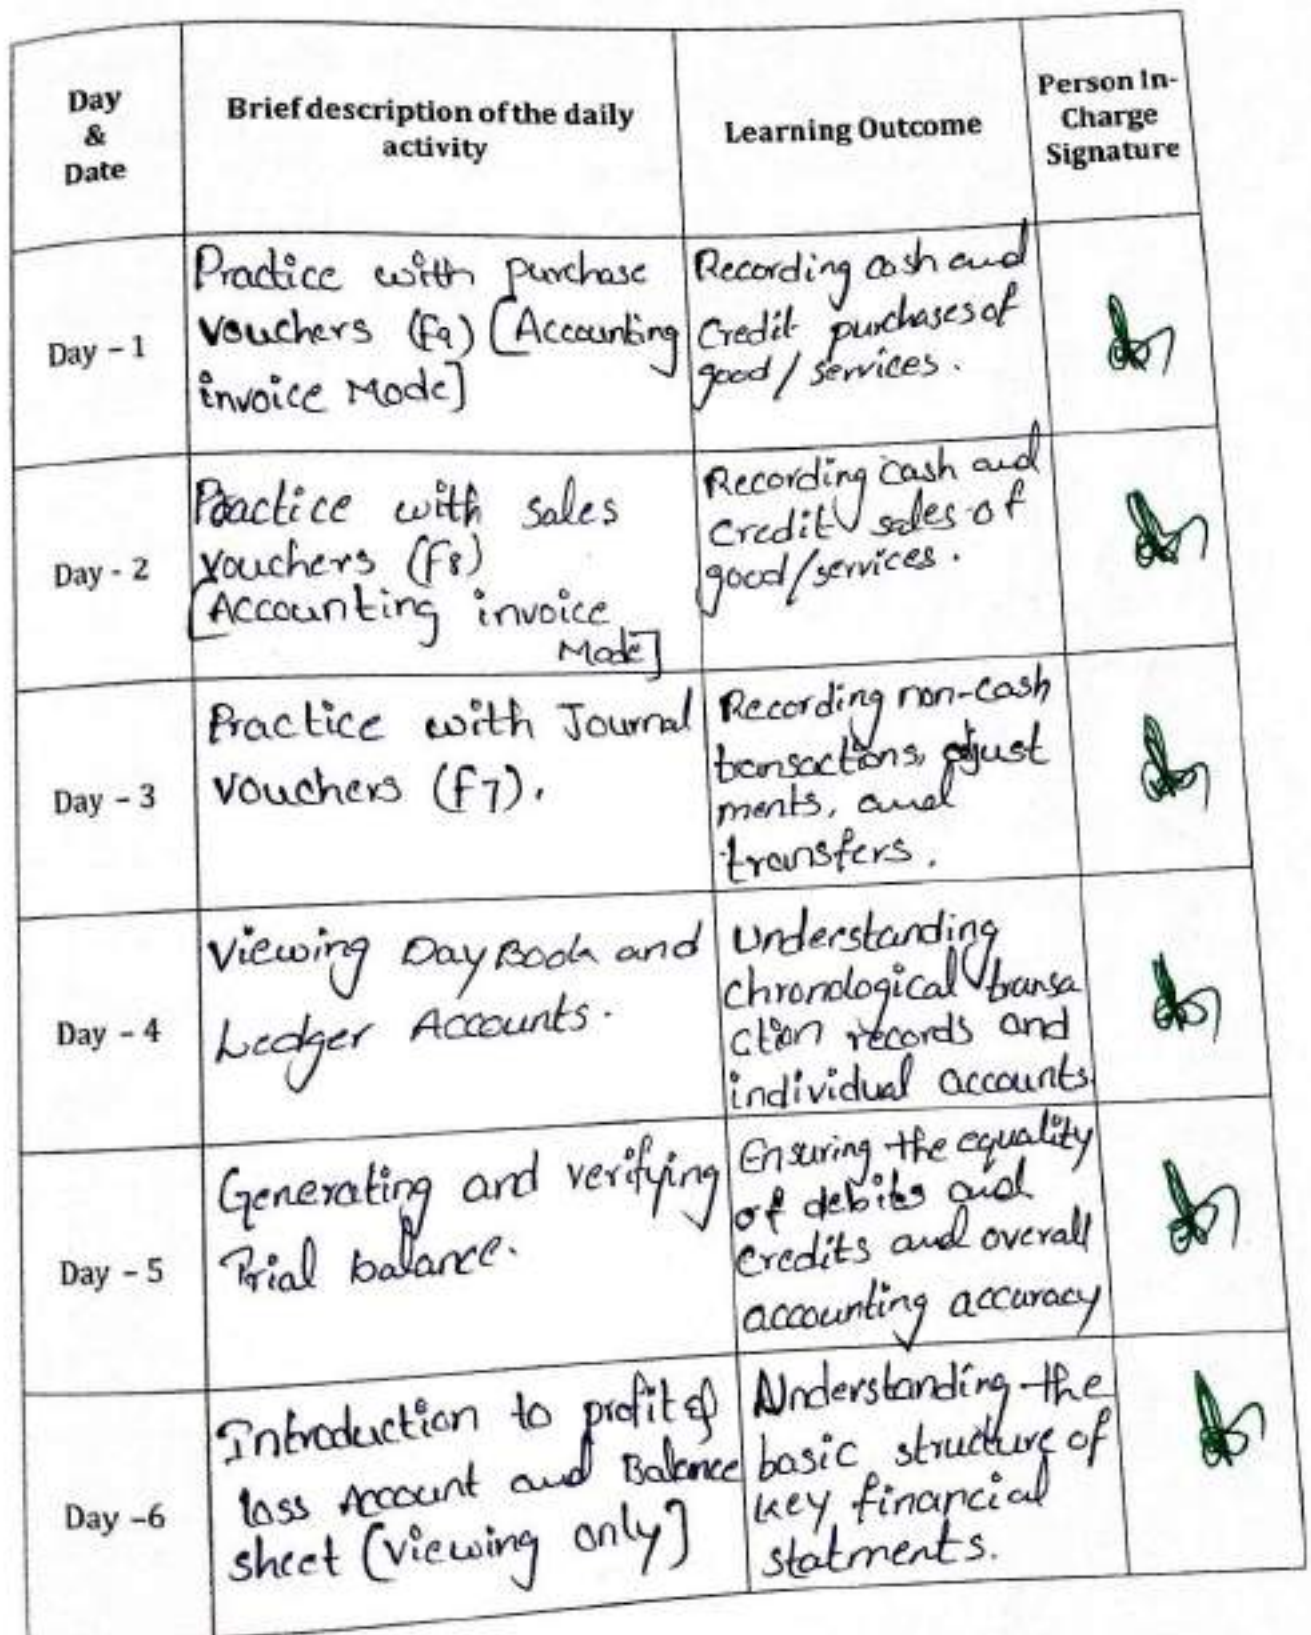 Day
&
Date
Brief description of the daily
activity
Learning Outcome
Person In-
Charge
Signature
Day - 1
Practice with purchase
vouchers (F9) [Accounting
invoice Mode]
Recording cash and
Credit purchases of
good/services.
Day - 2
Practice with sales
vouchers (F8)
[Accounting invoice
Mode]
Recording cash and
Credit sales of
good/services.
Day - 3
Practice with Journal
vouchers (F7).
Recording non-cash
transactions, adjust
ments, and
transfers.
Day - 4
Viewing Day Book and
Ledger Accounts.
Understanding
chronological transa
ction records and
individual accounts.
Day - 5
Generating and verifying
Trial balance.
Ensuring the equality
of debits and
credits and overall
accounting accuracy
Day -6
Introduction to profit &
loss Account and Balance
sheet (viewing only]
Understanding the
basic structure of
key financial
statments.